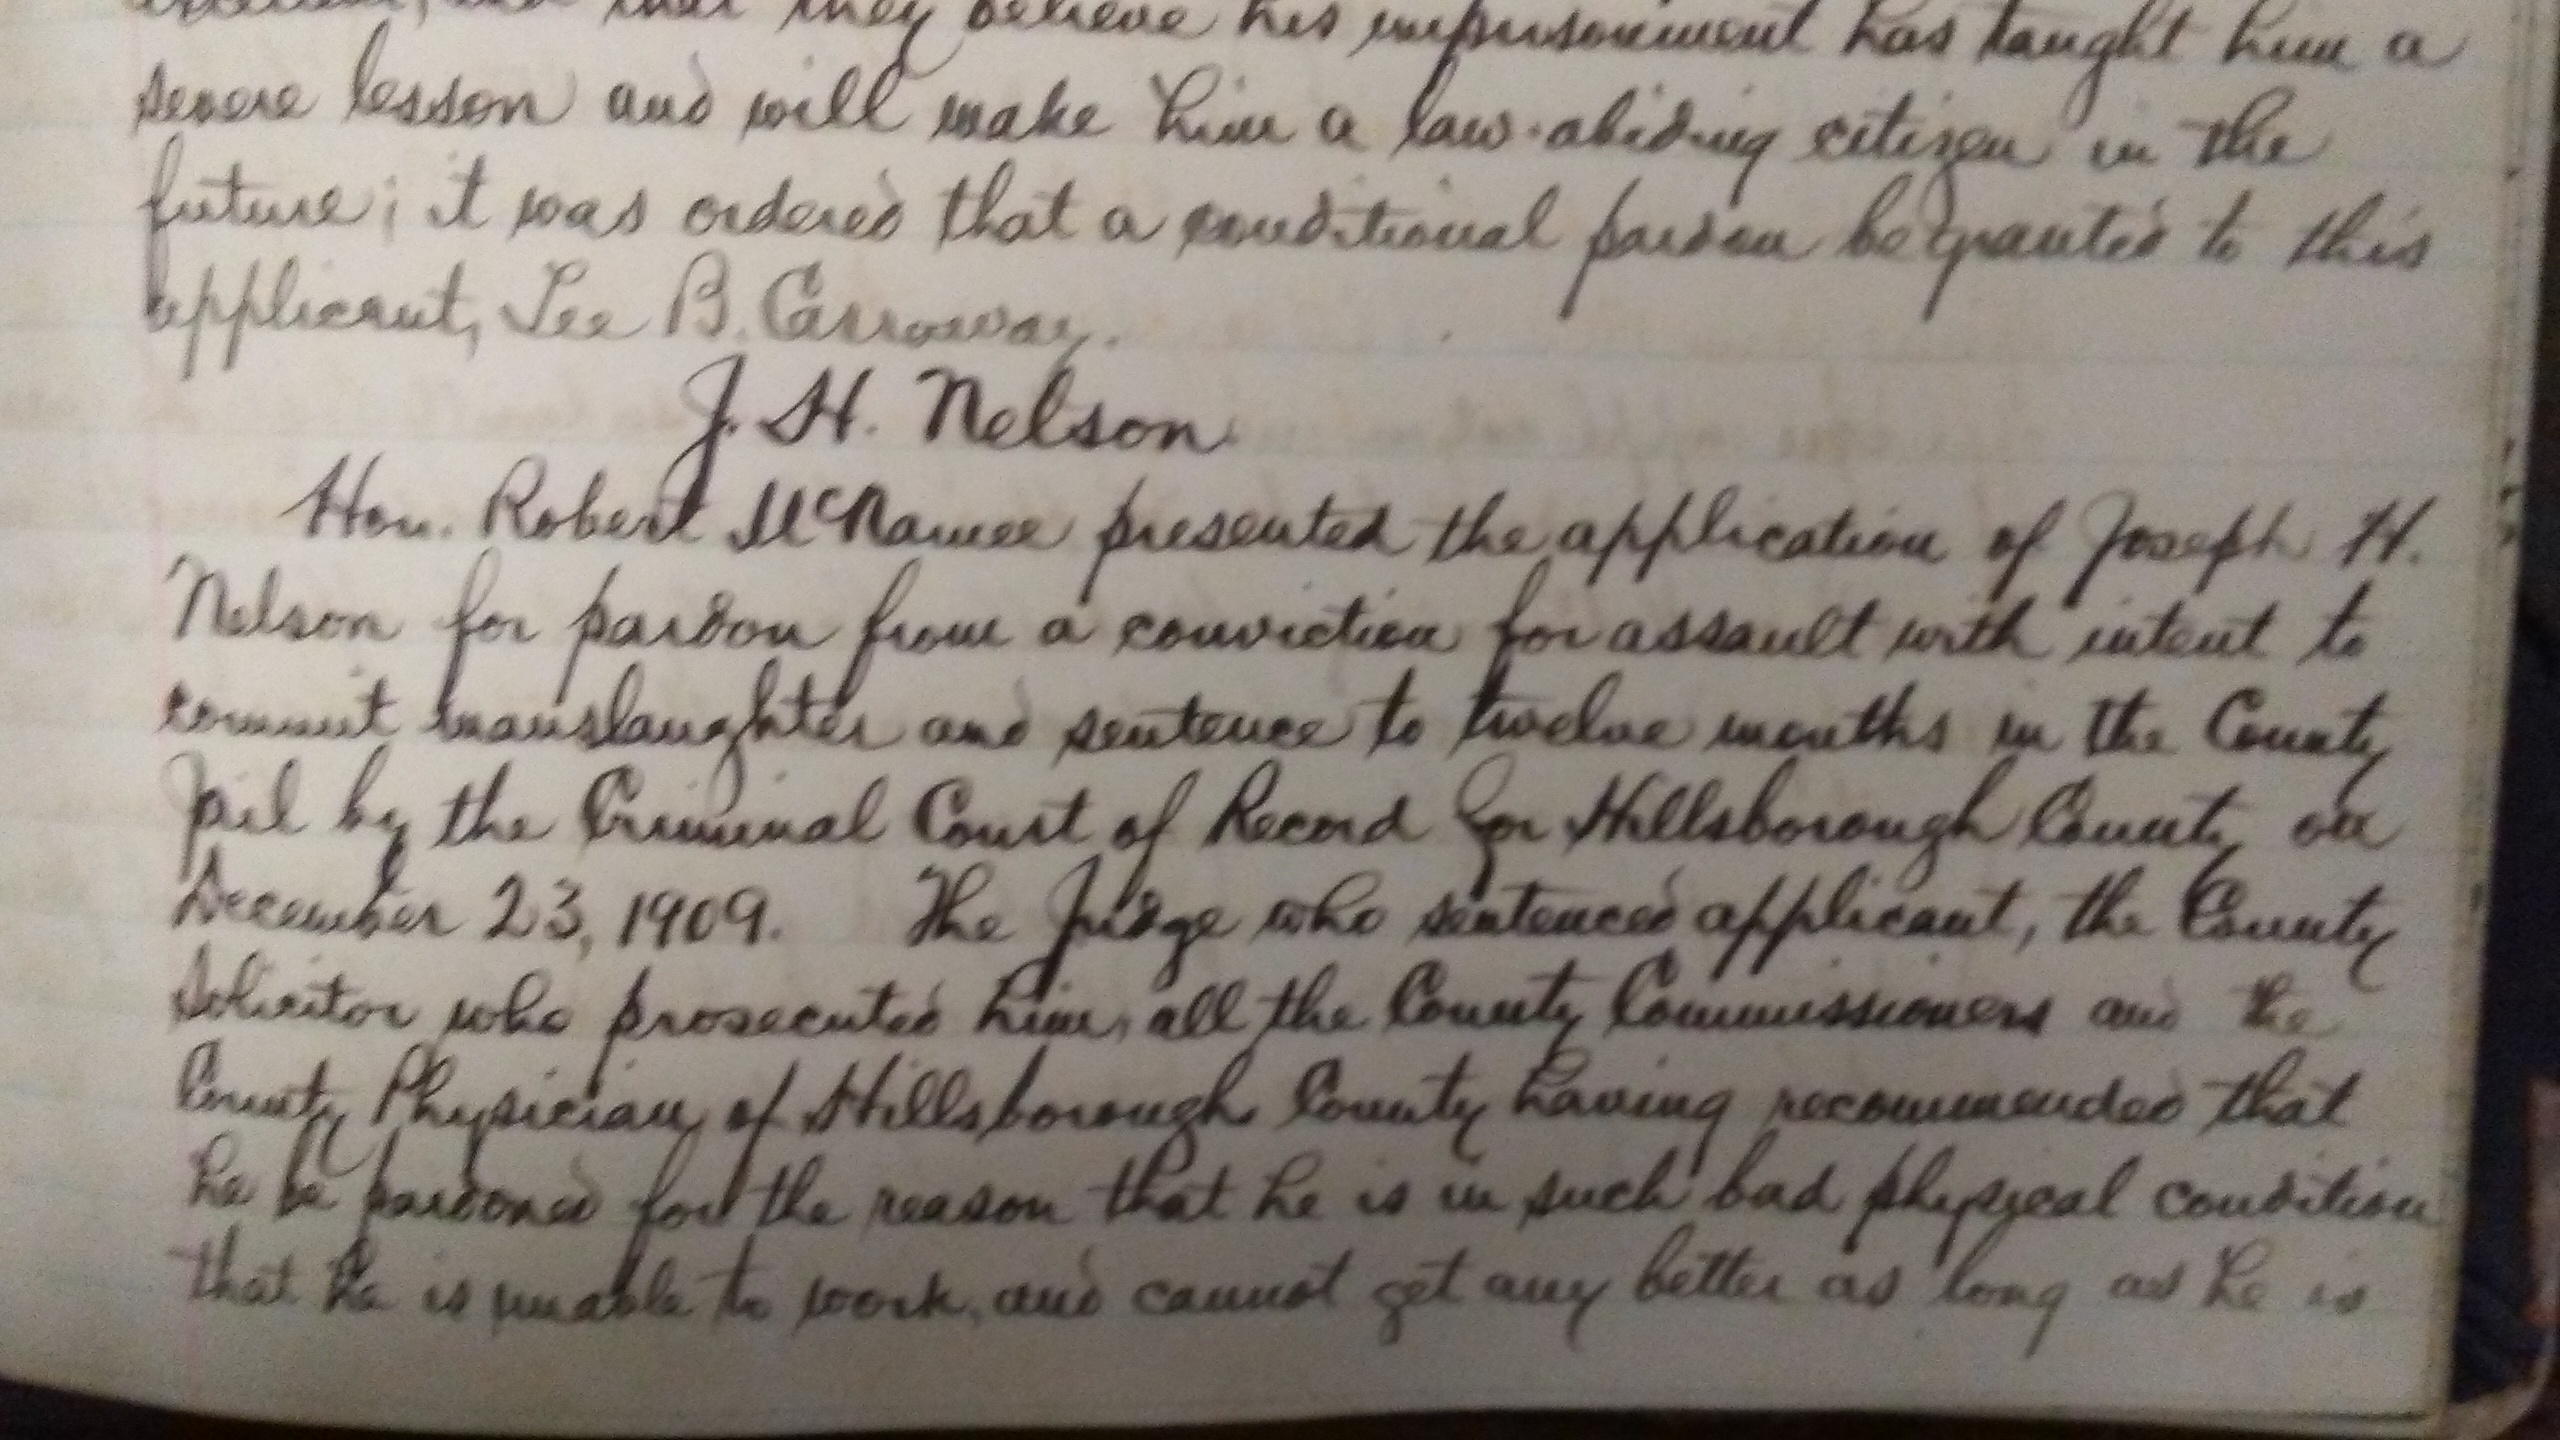 that they believe his imprisonment has taught him a
severe lesson and will make him a law-abiding citizen in the
future; it was ordered that a conditional pardon be granted to this
applicant, Lee B. Carraway.
J. H. Nelson
Hon. Robert McNamee presented the application of Joseph H.
Nelson for pardon from a conviction for assault with intent to
commit manslaughter and sentence to twelve months in the County
jail by the Criminal Court of Record for Hillsborough County on
December 23, 1909. The judge who sentenced applicant, the County
Solicitor who prosecuted him, all the County Commissioners and the
County Physician of Hillsborough County having recommended that
he be pardoned for the reason that he is in such bad physical condition
that he is unable to work, and cannot get any better as long as he is